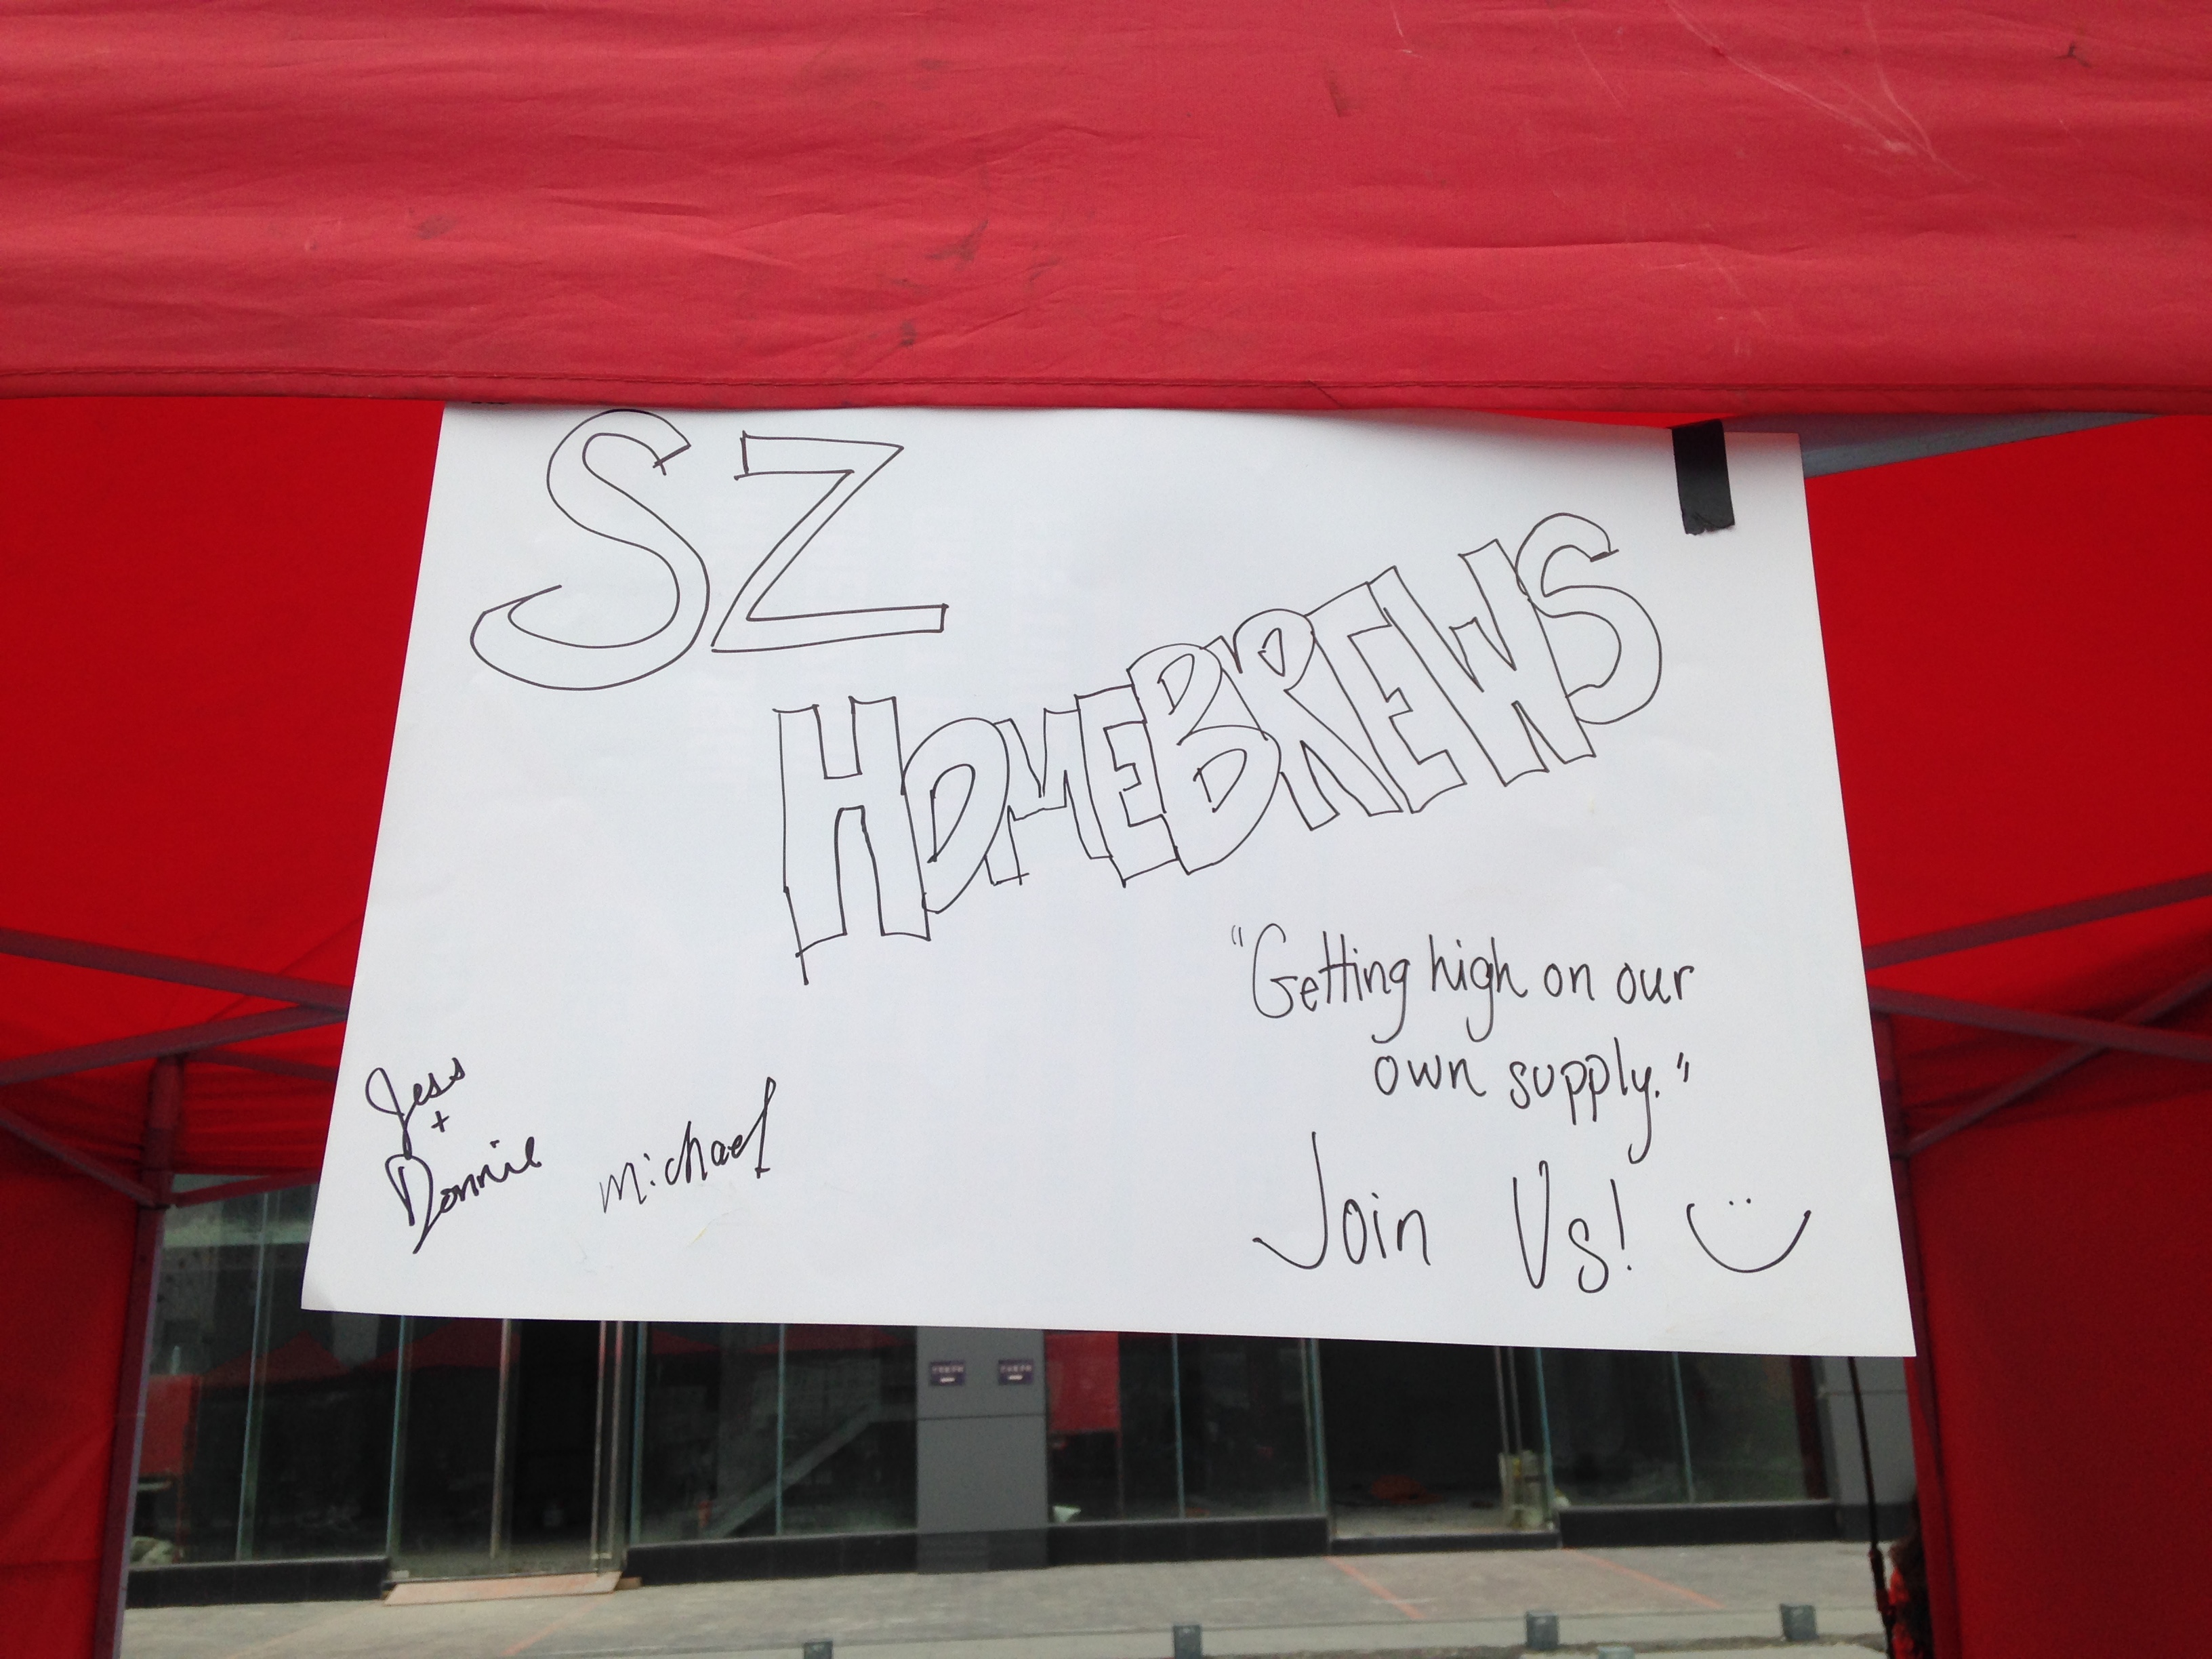 SZ
HOMEBREWS
"Getting high on our
own supply."
Join Us!
Jess
+
Donnie
michael